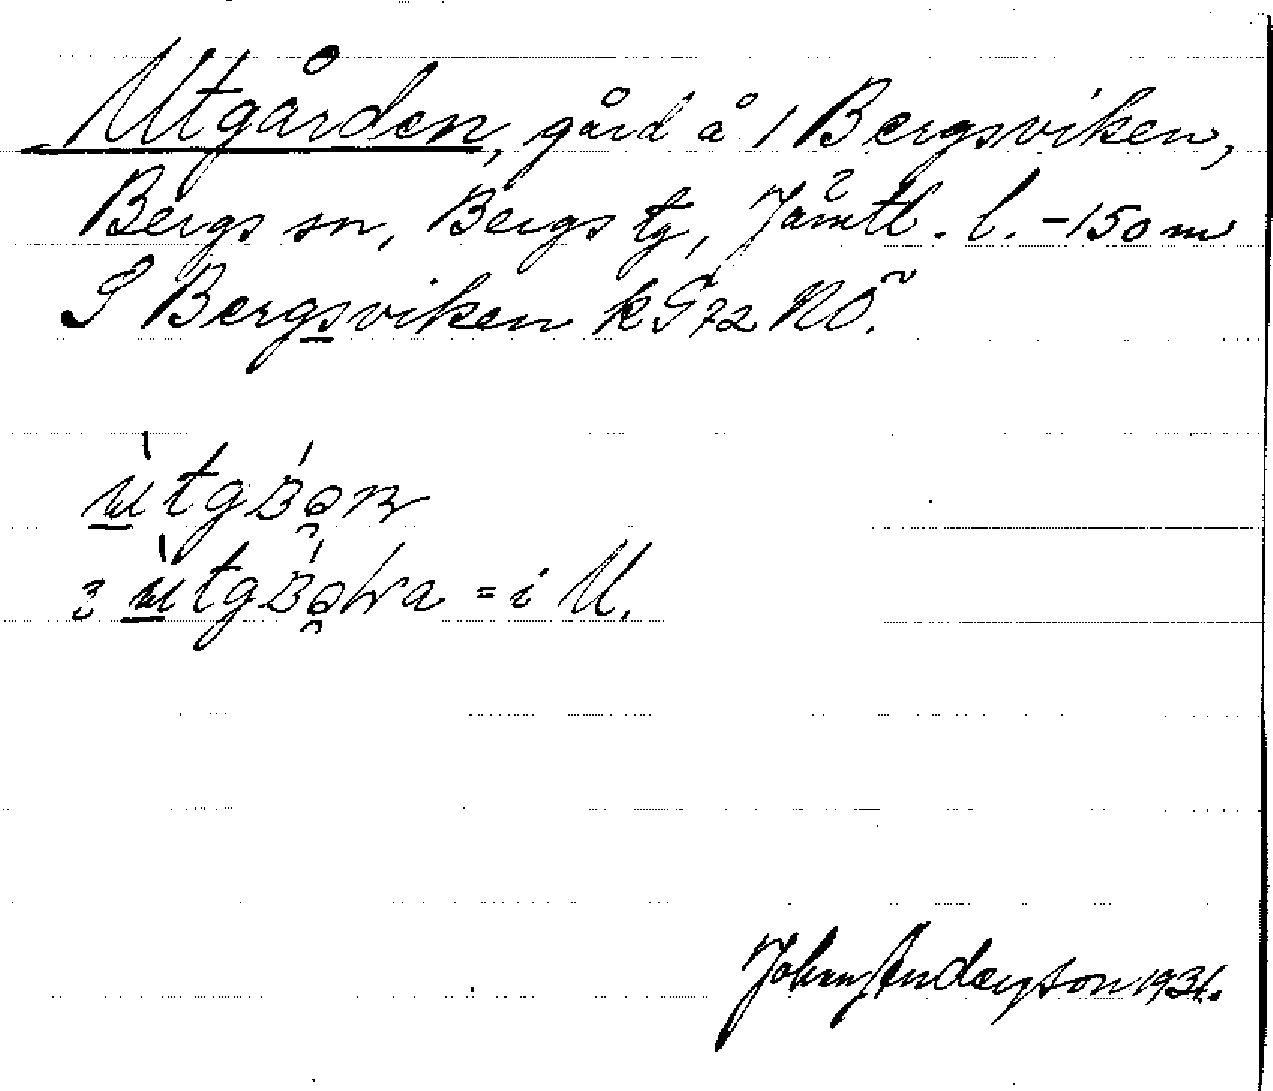 Utgården, gård å 1 Bergsviken,
Bergs sn, Bergs tg, Jämtl. l. -150 m
S Bergsviken k G72 NÖ.
= i U.
John Anderson 1931.